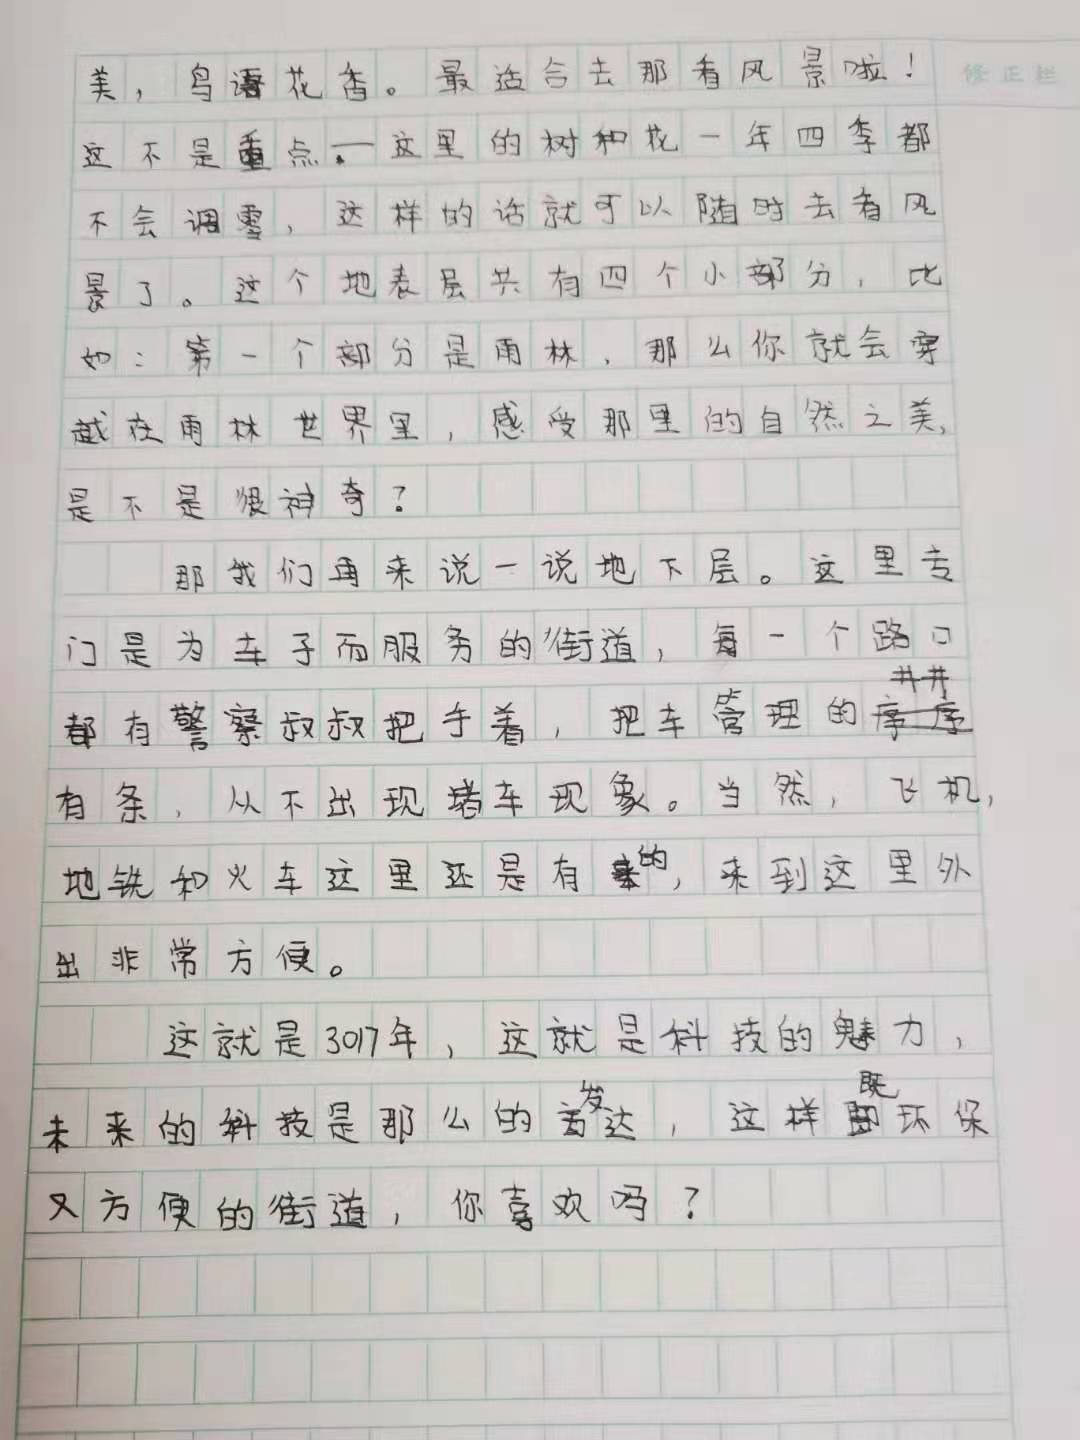 修正栏
美，鸟语花香。最适合去那看风景啦！
这不是重点。一这里的树和花一年四季都
不会调零，这样的话就可以随时去看风
景了。这个地表层共有四个小部分，比
如：第一个部分是雨林，那么你就会穿
越在雨林世界里，感受那里的自然之美，
是不是很神奇？
那我们再来说一说地下层。这里专
门是为车子而服务的街道，每一个路口
都有警察叔叔把手着，把车管理的井井
有条，从不出现堵车现象。当然，飞机，
地铁和火车这里还是有的，来到这里外
出非常方便。
这就是3017年，这就是科技的魅力，
未来的科技是那么的发达，这样既环保
又方便的街道，你喜欢吗？